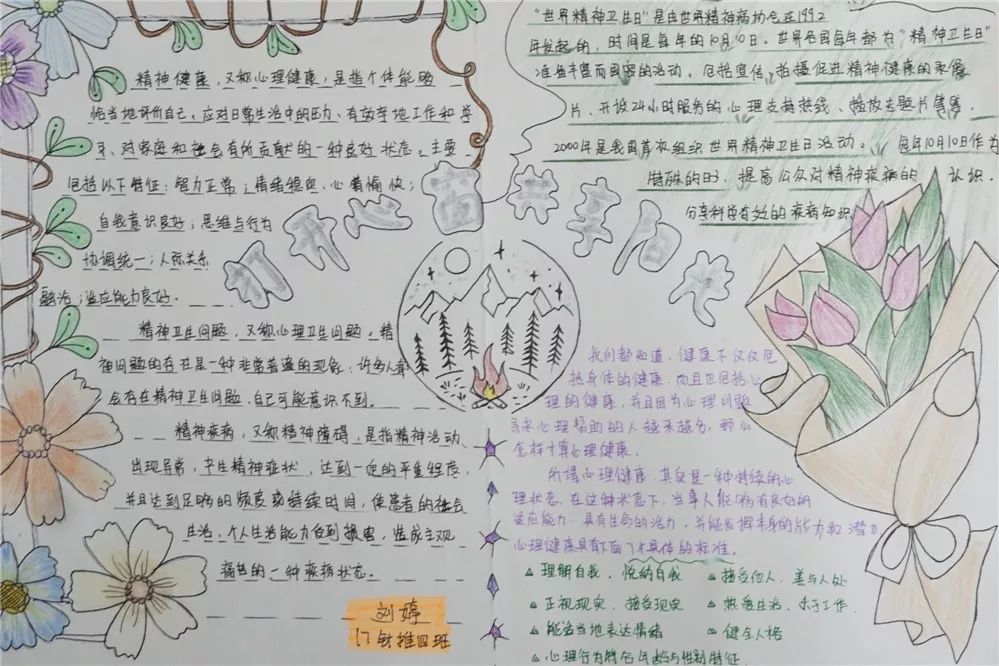 精神健康，又称心理健康，是指个体能够
恰当地评价自己，应对日常生活中的压力、有效率地工作和学
习、对家庭和社会有所贡献的一种良好状态。主要
包括以下特征：智力正常；情绪稳定、心情愉快；
自我意识良好；思维与行为
协调统一；人际关系
融洽；适应能力良好。
精神卫生问题，又称心理卫生问题。精
神问题的存在是一种非常普遍的现象，许多人都
会存在精神卫生问题，自己可能意识不到。
精神疾病，又称精神障碍，是指精神活动
出现异常，产生精神症状，达到一定的严重程度，
并且达到足够的频度或持续时间，使患者的社会
生活、个人生活能力受到损害，造成主观
痛苦的一种疾病状态。
刘婷
17针推四班
打开心窗共享阳光
"世界精神卫生日"是由世界精神病协会在1992
年发起的，时间是每年的10月10日。世界各国每年都为"精神卫生日"
准备丰富而周密的活动。包括宣传、拍摄促进精神健康的录像
片、开设24小时服务的心理支持热线、播放专题片等等。
2000年是我国首次组织世界精神卫生日活动。每年10月10日作为
特殊的时，提高公众对精神疾病的认识，
分享科学有效的疾病知识
我们都知道，健康不仅仅包
括身体的健康，而且也包括心
理的健康，并且因为心理问题
寻求心理帮助的人越来越多，那么
怎样才算心理健康。
所谓心理健康，其实是一种持续的心
理状态，在这种状态下，当事人能够有良好的
适应能力，具有生命的活力，并能发挥本身的能力和潜力
心理健康具有下面7个具体的标准。
理解自我，悦纳自我 接受他人，善与人处
正视现实，接受现实 热爱生活，乐于工作.
能适当地表达情绪 健全人格
心理行为符合年龄与性别特征